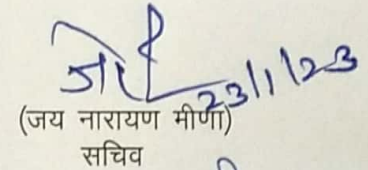 23/1/23
(जय नारायण मीणा)
सचिव